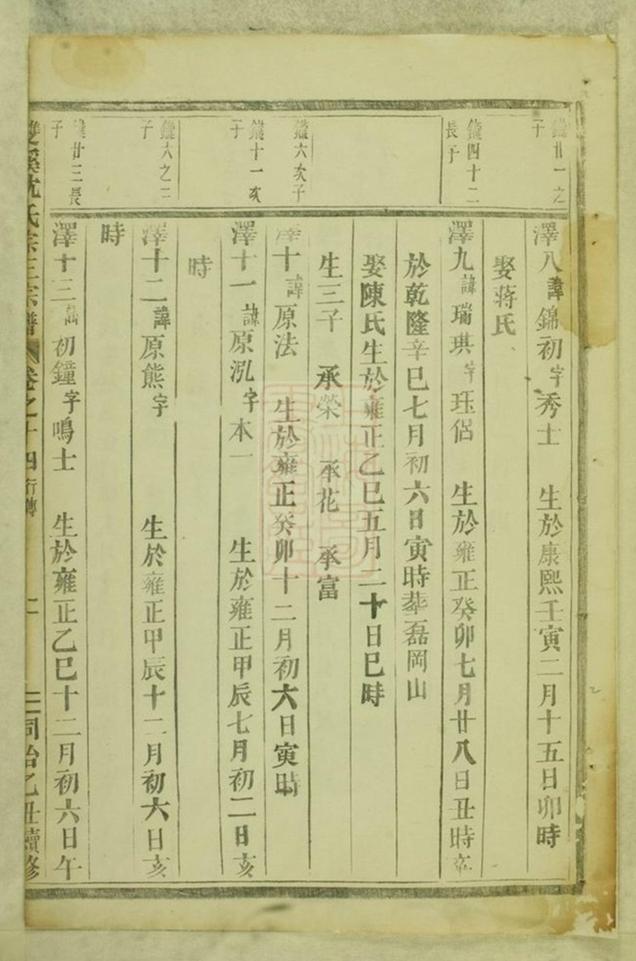 鐩廿一之
子
澤八諱錦初字秀士 生於康熙壬寅二月十五日卯時
娶蔣氏
鐩四十二
長子
澤九諱瑞琪字珏侶 生於雍正癸卯七月廿八日丑時卒
於乾隆辛巳七月初六日寅時葬磊岡山
娶陳氏生於雍正乙巳五月二十日巳時
生三子 承榮 承花 承富
六次子
澤十諱原法 生於雍正癸卯十二月初六日寅時
鐩十一次
子
澤十一諱原泓字本一 生於雍正甲辰七月初二日亥
時
鐩六之三
子
澤十二諱原熊字 生於雍正甲辰十二月初六日亥
時
鐩廿三長
子
澤十三諱初鐘字鳴士 生於雍正乙巳十二月初六日午
雙溪沈氏宗譜 卷之十四 行傳 同治乙丑續修